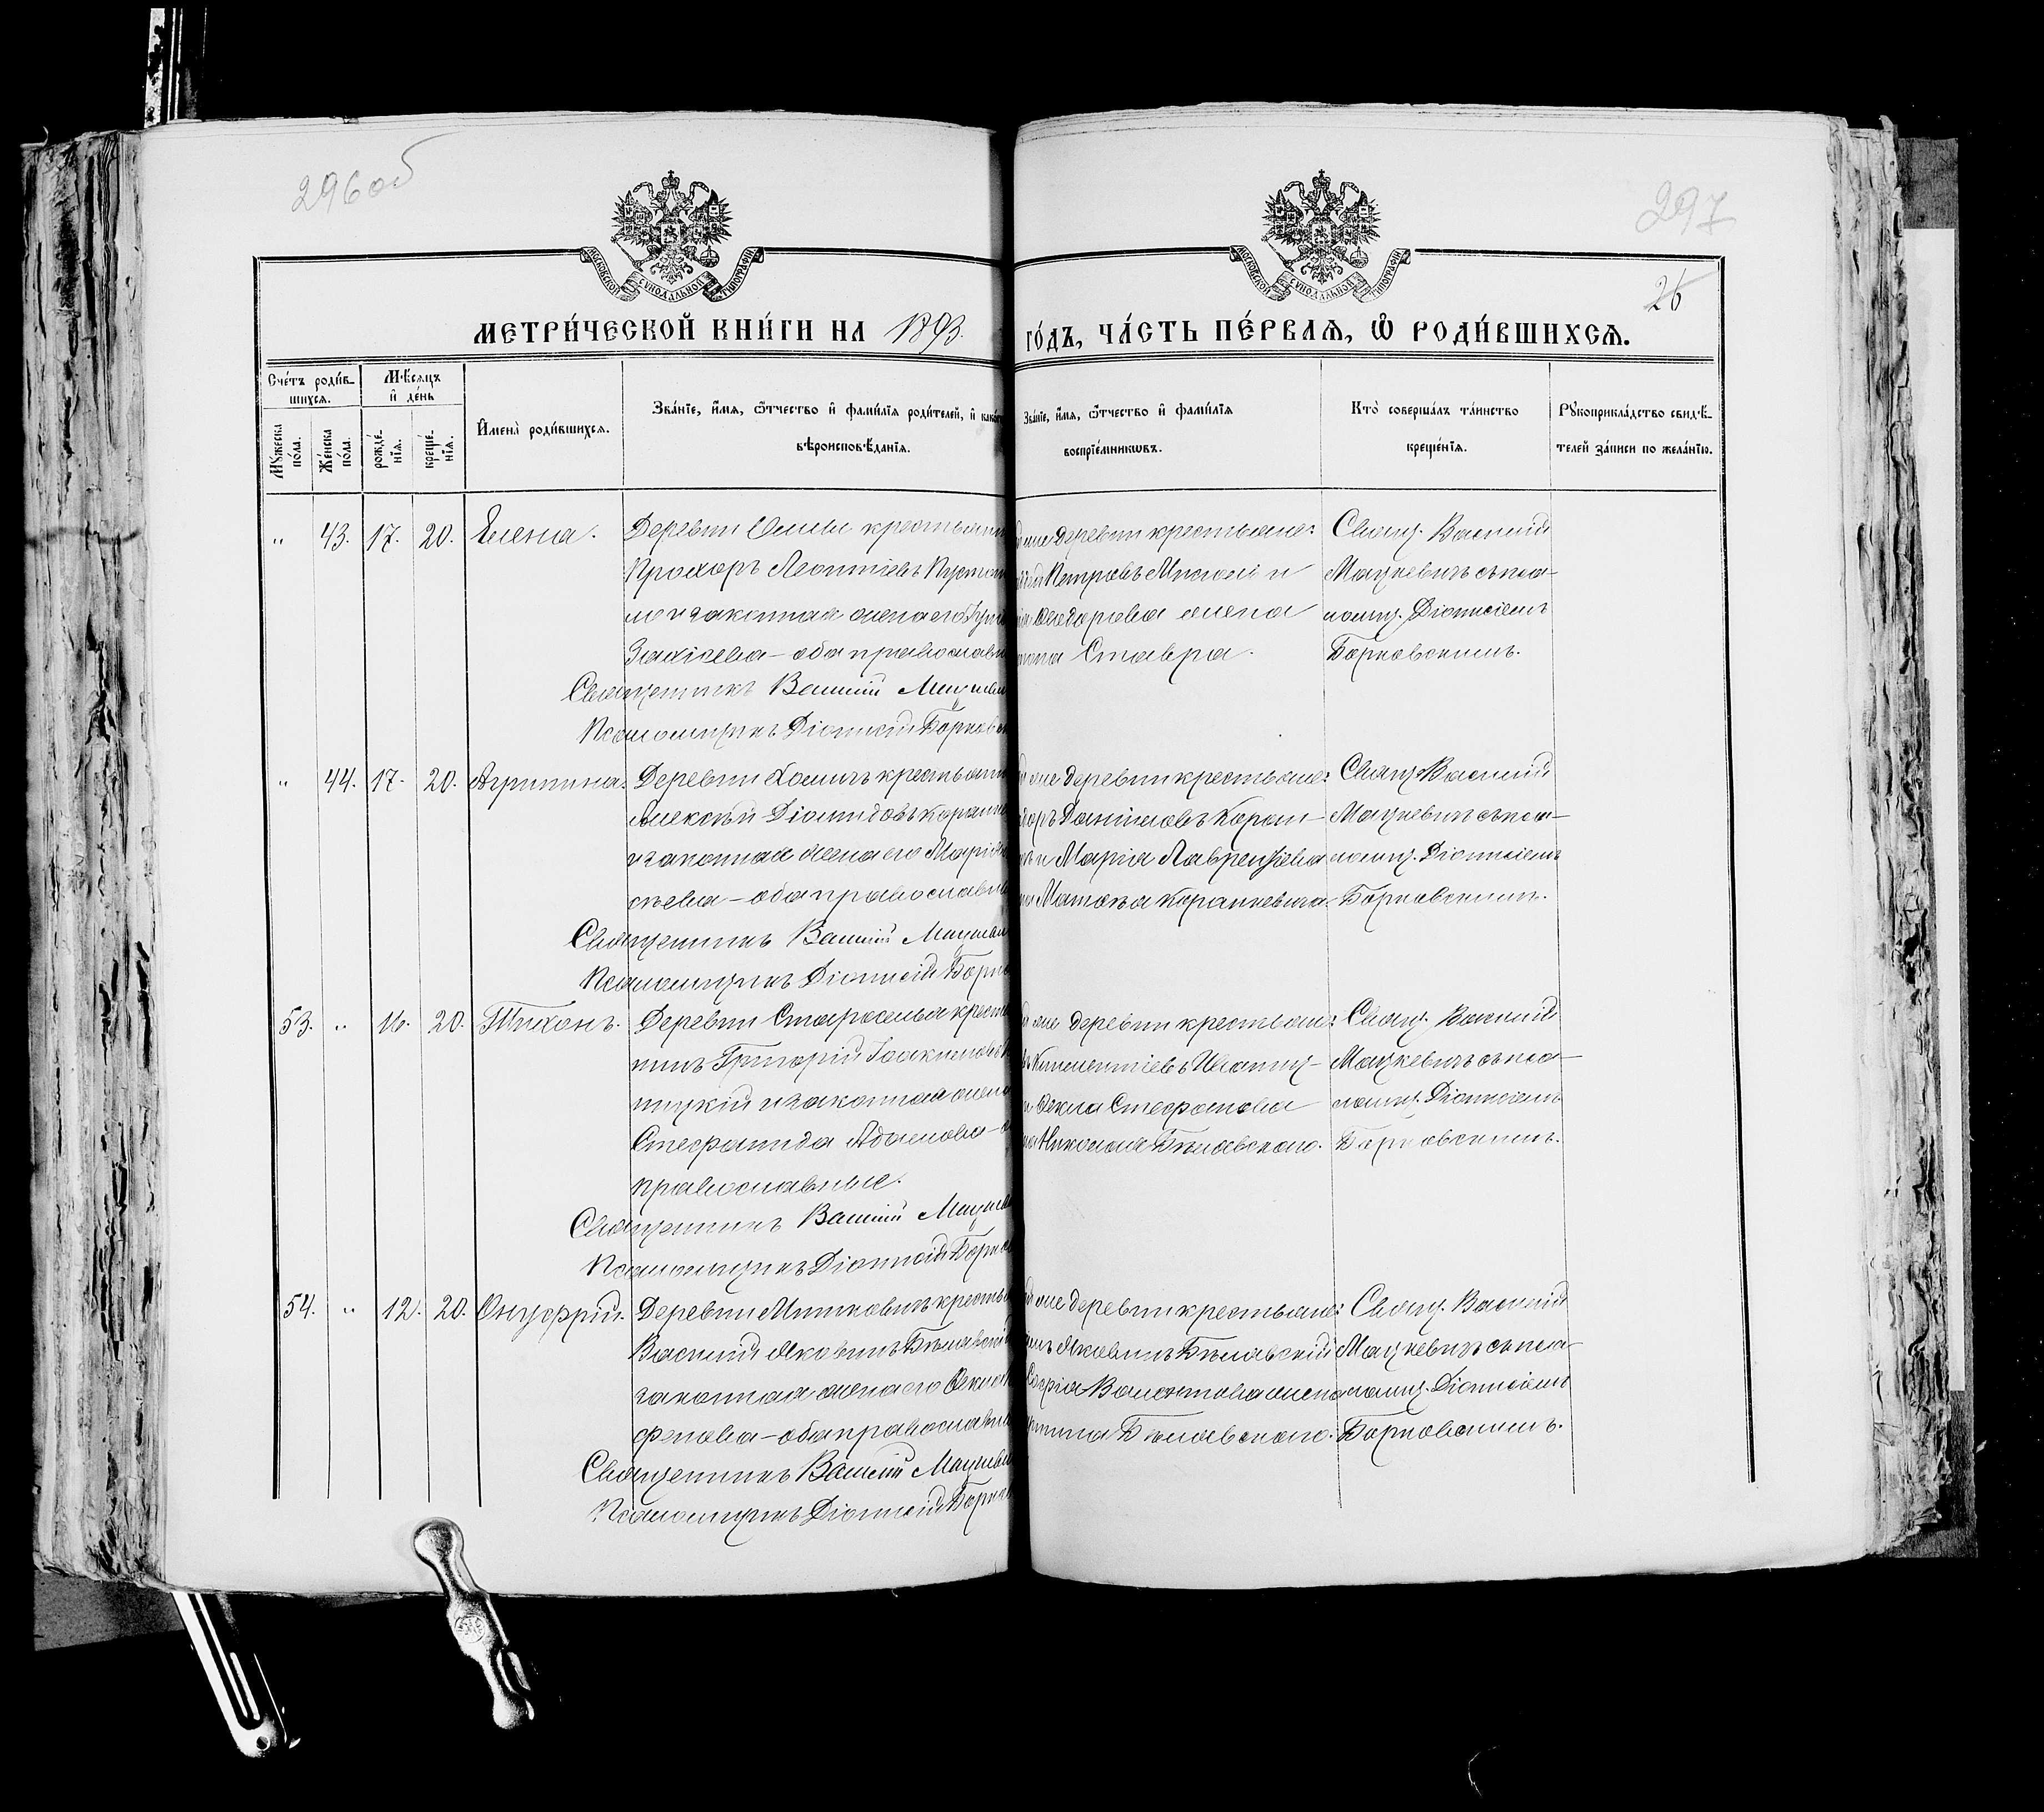 296об
297
26
МОСКОВСКОЙ СУНОДАЛЬНОЙ ТИПОГРАФІИ
МОСКОВСКОЙ СУНОДАЛЬНОЙ ТИПОГРАФІИ
МЕТРИ́ЧЕСКОЙ КНИ́ГИ НА 1893.
ГО́ДЪ, ЧА́СТЬ ПЕ́РВАѦ, Ѽ РОДИ́ВШИХСѦ.
Сче́тъ роди́в-
шихсѧ.
Мꙋ́жеска по́ла.
Же́нска по́ла.
Мѣ́сѧцъ и҆ де́нь
рожде́-нїѧ.
креще́-нїѧ.
И҆мена̀ роди́вшихсѧ.
Зва́нїе, и҆́мѧ, ѿтчество и҆ фами́лїѧ роди́телей, и҆
вѣроисповѣ́данїѧ.
Зва́нїе, и҆́мѧ, ѿтчество и҆ фами́лїѧ
воспрїе́мникѡвъ.
Кто̀ соверша́лъ та́инство
креще́нїѧ.
Рꙋкоприкла́дство свидѣ́-
телей за́писи по жела́нїю.
" 43. 17. 20. Елена.
Деревни крестьянин
Прохоръ Леонтіевъ
и законная жена его
оба православн
Священникъ Василій Мацкеви
Псаломщикъ Діонисій Борковск
же деревни крестьяне:
Петровъ и
Ѳеодорова жена
Ставра.
Свящ. Василій
Мацкевичъ съ пса-
ломщ. Діонисіемъ
Борковскимъ.
" 44. 17. 20. Агрипина.
Деревни Хомичъ крестьянин
Алексѣй Діомидовъ Коранке
и законная жена его Марія
оба православн
Священникъ Василій Мацкеви
Псаломщикъ Діонисій Борков
же деревни крестьяне:
Даніиловъ Коран-
и Марія Лаврентіева
Коранкевича.
Свящ. Василій
Мацкевичъ съ пса-
ломщ. Діонисіемъ
Борковскимъ.
53. " 16. 20. Тихонъ.
Деревни Староселья кресть
нинъ Григорій Іоакимовъ
ницкій и законная жена
Стефанида Адамова
православные.
Священникъ Василій Мацкев
Псаломщикъ Діонисій Борков
же деревни крестьян:
Климентіевъ Иваниц-
и Ѳекла Стефанова
Николая Бѣлавскаго.
Свящ. Василій
Мацкевичъ съ пса-
ломщ. Діонисіемъ
Борковскимъ.
54. " 12. 20. Онуфрій.
Деревни Митковичъ кресть
Василій Яковинъ Бѣлавскій
законная жена его Ѳекла
фенова - оба православн
Священникъ Василій Мацкеви
Псаломщикъ Діонисій Борков
же деревни крестьяне:
Яковинъ Бѣлавскій
Софія жена
Бѣлавскаго.
Свящ. Василій
Мацкевичъ съ пса-
ломщ. Діонисіемъ
Борковскимъ.